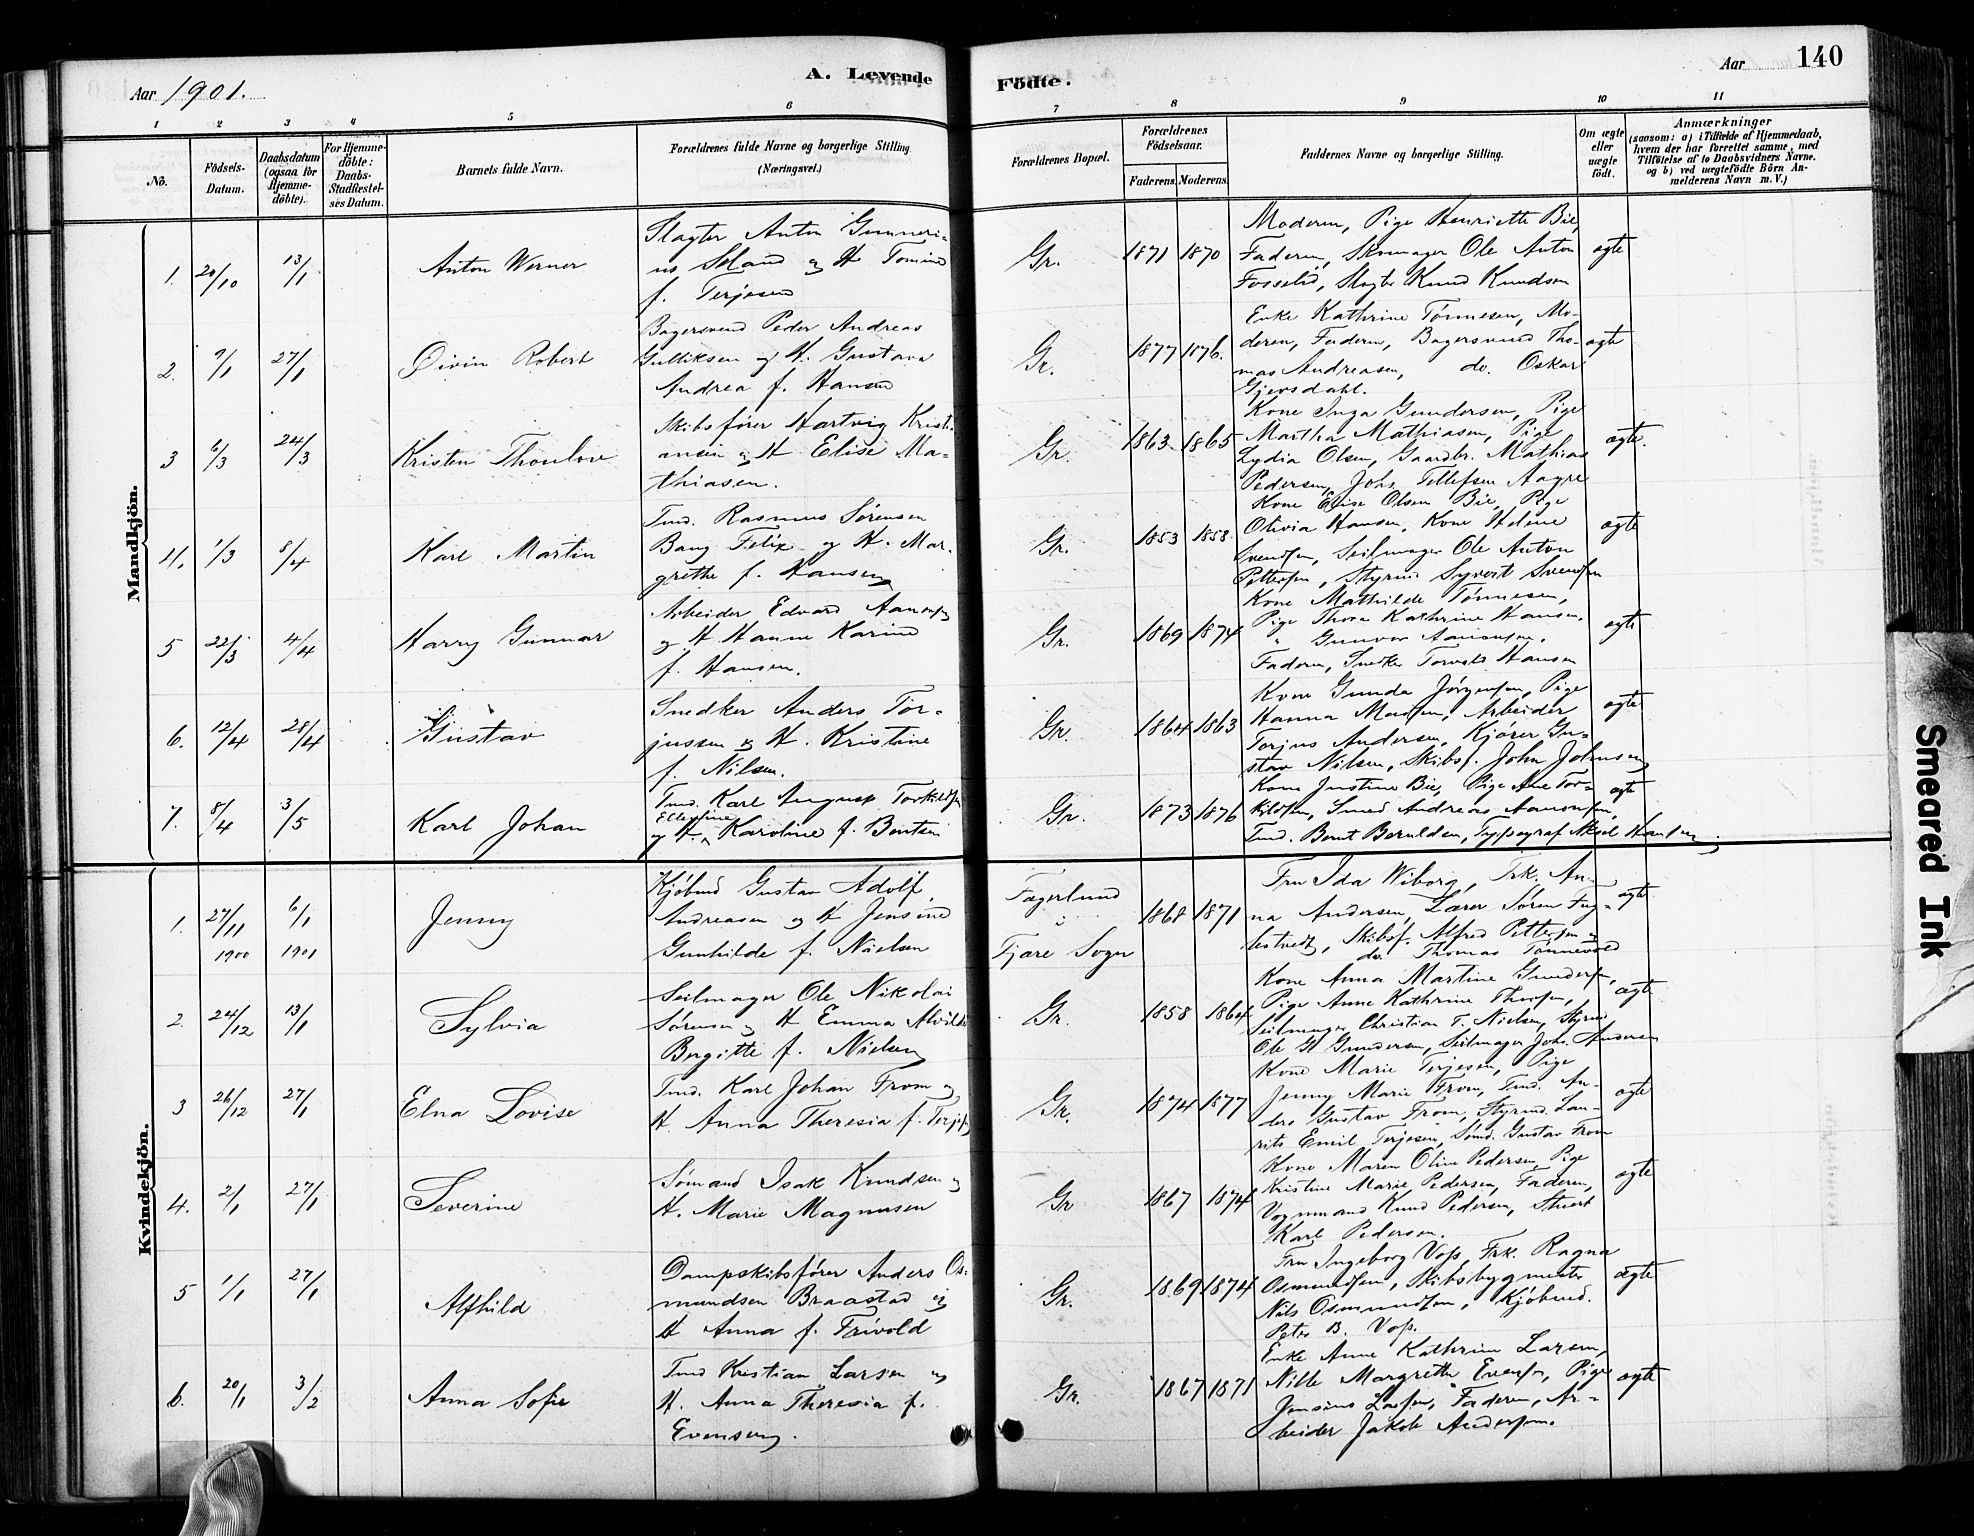 Aar 1901.
A. Levende
Födte.
Aar
140
1 2 3 4 5 6
7 8 9 10 11
No.
Födsels-
Datum.
Daabsdatum
(ogsaa for
Hjemme-
döbte).
For Hjemme-
döbte:
Daabs-
Stadfæstel-
ses Datum.
Barnets fulde Navn.
Forældrenes fulde Navne og borgerlige Stilling
(Næringsvei.)
Forældrenes Bopæl.
Forældrenes
Födselsaar.
Faderens. Moderens.
Faddernes Navne og borgerlige Stilling.
Om ægte
eller
uægte
födt.
Anmærkninger
(saasom: a) i Tilfælde af Hjemmedaab,
hvem der har forrettet samme, med
Tilföielse af to Daabsvidners Navne.
og b) ved uægtefödte Börn An-
melderens Navn m. V.)
Mandkjön.
1. 20/10 13/1 Anton Werner
Slagter Anton Gunneri-
us Seland og H Tomine
f. Terjesen
Gr. 1871 1870
Moderen, Pige Henriette Bie,
Faderen, Skomager Ole Anton
Fosselid, Slagter Knud Knudsen
ægte
2. 9/1 27/1 Öivin Robert
Bagersvend Peder Andreas
Gulliksen og H. Gustava
Andrea f. Hansen
Gr. 1877 1876.
Enke Kathrine Tönnesen, Mo-
deren, Faderen, Bagersvend Tho-
mas Andreasen, do. Oskar
Gjersdahl.
ægte
3 6/3 24/3 Kristen Thoulow
Skibsförer Hartvig Kristi-
ansen og H Elise Ma-
thiasen.
Gr. 1863 1865
Kone Inga Gundersen, Pige
Martha Mathiasen, Pige
Lydia Olsen, Gaardbr. Mathias
Pedersen, Johs Tellefsen Aagre
ægte.
4. 1/3 8/4 Karl Martin
Tmd. Rasmus Sörensen
Bang Felix og H. Mar-
grethe f. Hansen
Gr. 1853 1858.
Kone Elise Olsen Bie, Pige
Olivia Hansen, Kone Helene
Svendsen, Seilmager Ole Anton
Pettersen, Styrmd Syvert Svendsen
ægte
5 22/3 4/4 Harry Gunnar
Arbeider Edvard Aanonsen
og H. Hanne Karine
f. Hansen.
Gr. 1869 1874
Kone Mathilde Tönnesen,
Pige Thora Kathrine Hansen,
" Gunvor Aanonsen,
Faderen, Snedker Torvald Hansen
ægte
6. 12/4 28/4 Gustav
Snedker Anders Tor-
jussen og H. Kristine
f. Nilsen.
Gr. 1864 1863
Kone Gunda Jörgensen, Pige
Hanna Madsen, Arbeider
Torjus Andersen, Kjörer Gu-
stav Nilsen, Skibsf. John Johnsen
ægte
7. 8/4 3/5 Karl Johan
Tmd. Karl August Torkildsen
og H. Ellevine Karoline f. Bentsen
Gr. 1873 1876
Kone Justine Bie, Pige Ane Tor-
kildsen, Smed Andreas Aanonsen,
Tmd. Bernt Berulden, Typograf Aksel Hansen
ægte
Kvindekjön.
1. 27/11 1900 6/1 1901 Jenny
Kjöbmd Gustav Adolf
Andreasen og H Jensine
Gunhilde f. Nielsen
Fagerlund
i
Fjære Sogn
1868 1871
Fru Ida Wiborg, Frk. An-
na Andersen, Lærer Sören Fug-
lestvedt, Skibsf. Alfred Pettersen og
do. Thomas Tönnevold
ægte
2. 24/12 13/1 Sylvia
Seilmager Ole Nikolai
Sörensen og H Emma Alvilde
Bergitte f. Nielsen
Gr. 1858 1864
Kone Anna Martine Gundersen,
Pige Anne Kathrine Thorsen,
Seilmager Christian T. Nielsen, Styrmd
Ole H Gundersen, Seilmager Johs. Andersen
ægte
3 26/12 27/1 Elna Lovise
Tmd. Karl Johan From og
H. Anna Theresia f. Terjesen
Gr. 1874 1877
Kone Marie Terjesen, Pige
Jenny Marie From, Tmd. An-
ders Gustav From, Styrmd. Lau-
rits Emil Terjesen, Sömd. Gustav From
ægte
4. 2/1 27/1 Severine
Sömand Isak Knudsen og
H. Marie Magnusen
Gr 1867 1874
Kone Maren Oline Pedersen, Pige
Kristine Marie Pedersen, Faderen,
Vognmand Knud Pedersen, Stuert
Karl Pedersen.
ægte
5 1/1 27/1 Alfhild
Dampskibsförer Anders Os-
mundsen Braastad og
H Anna f. Frivold
Gr. 1869 1874
Fru Ingeborg Voss, Frk. Ragna
Osmundsen, Skibsbygmester
Nils Osmundsen, Kjöbmd.
Peter B. Voss.
ægte
6. 20/1 3/2 Anna Sofie
Tmd Kristian Larsen og
H. Anna Theresia f.
Evensen.
Gr. 1867 1871
Enke Anne Kathrine Larsen,
Nille Margrethe Evensen, Pige
Jensine Larsen, Faderen, Ar-
beider Jakob Andersen.
ægte
Smeared Ink